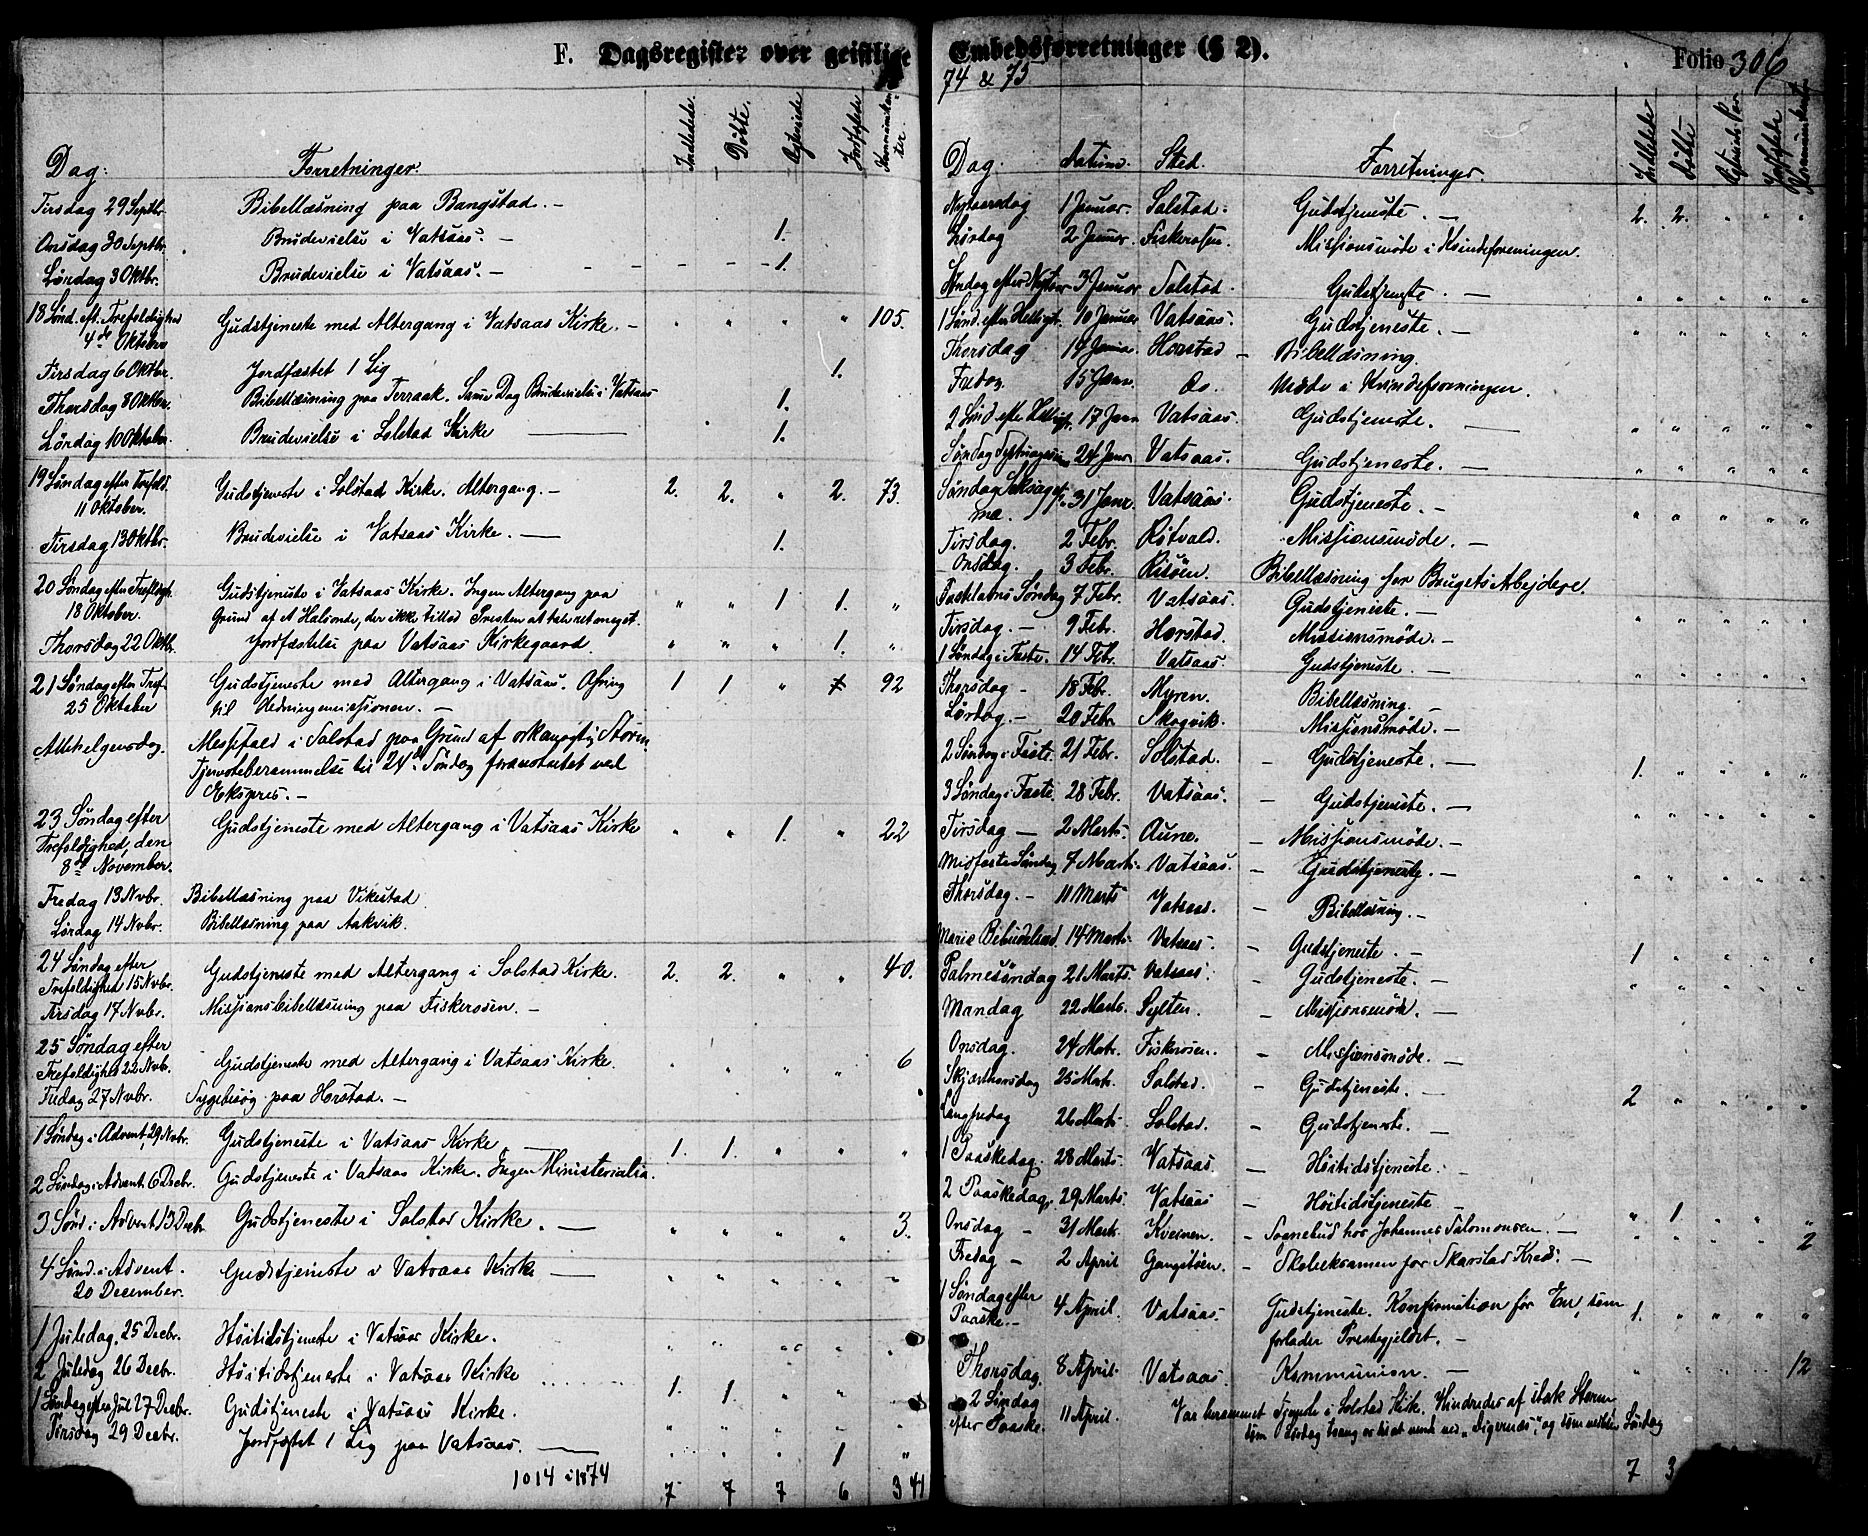 F. Dagsregister over geistlige
Dag: Forretninger: Indledede. Døbte. Ægteviede Jordfæstede Kommunikanter.
Tirsdag 29 Septbr. Bibellæsning paa Bangstad. –
Onsdag 30 Septbr. Brudevielse i Vatsaas. – 1.
Lørdag 3 Oktbr. Brudevielse i Vatsaas. – 1.
18 Sønd. eft. Trefoldighed Gudstjeneste med Altergang i Vatsaas Kirke. – " " " " 105.
4de Oktober
Tirsdag 6 Oktbr. Jordfæstet 1 Lig 1.
Thorsdag 8 Oktbr. Bibellæsning paa Terraak. Same Dag Brudevielse i Vatsaas 1.
Lørdag 10 Oktober. Brudevielse i Solstad Kirke 1.
19 Søndag efter Trefold. Gudstjeneste i Solstad Kirke. Altergang. – 2. 2. " 2. 73.
11 Oktober.
Tirsdag 13 Oktbr. Brudevielse i Vatsaas Kirke. — 1.
20 Søndag efter Trefoldigh. Gudstjeneste i Vatsaas Kirke. Ingen Altergang paa
18 Oktober. Grund af et Halsonde, der ikke tillod Presten at tale ret meget. " " 1 1. "
Thorsdag 22 Oktbr. Jordfæstelse paa Vatsaas Kirkegaard. " " " 1. "
21 Søndag efter Tref. Gudstjeneste med Altergang i Vatsaas. Ofring 1 1 " 92
25 Oktober til Hedningemissionen. –
Allehelgensdag. Messefald i Solstad paa Grund af orkanagtig Storm.
Tjenesteberammelse til 24de Søndag foranstaltet ved
Ekspres. –
23 Søndag efter Gudstjeneste med Altergang i Vatsaas Kirke " " 1. " 22
Trefoldighed, den
8de November.
Fredag 13 Nvbr. Bibellæsning paa Vikestad.
Lørdag 14 Nvbr. Bibellæsning paa Aakvik.
24 Søndag efter Gudstjeneste med Altergang i Solstad Kirke. 2. 2. " " 40.
Trefoldighed 15 Nvbr.
Tirsdag 17 Nvbr. Missionsbibellæsning paa Fiskerosen. –
25 Søndag efter
Trefoldighed 22 Nvb. Gudstjeneste med Altergang i Vatsaas Kirke. " " " " 6
Fredag 27 Nvbr. Sygebesøg paa Horstad. –
1 Søndag i Advent, 29 Nvbr. Gudstjeneste i Vatsaas Kirke — 1. 1. " " "
2 Søndag i Advent 6 Decbr. Gudstjeneste i Vatsaas Kirke. Ingen Ministerialia.
3 Sønd. i Advent 13 Decbr. Gudstjeneste i Solstad Kirke. — " " " " 3.
4 Sønd. i Advent. Gudstjeneste i Vatsaas Kirke — " " " " "
20 December.
1 Juledag. 25 Decbr. Høitidstjeneste i Vatsaas Kirke. " " " " "
2 Juledag 26 Decbr. Høitidstjeneste i Vatsaas Kirke 1. 1. " " "
1 Søndag efter Jul 27 Decbr. Gudstjeneste i Vatsaas Kirke. " " " " "
Tirsdag 29 Decbr. Jordfæstet 1 Lig paa Vatsaas. — " " " 1 "
1014 i 1874 7 7 7 6 341
Embedsforretninger (§ 2). Folio 306
74 & 75
Dag. Datum. Sted. Forretninger. Indledede Døbte Jordfæstede
Nytaarsdag 1 Januar. Solstad. Gudstjeneste. – 2. 2. " " "
Lørdag 2 Januar. Fiskerosen. Missionsmøde i Kvindeforeningen.
Søndag efter Nytaar 3 Januar Solstad. Gudstjeneste. — " " " " "
1 Sønd. efter Hellig. 10 Januar Vatsaas. Gudstjeneste. – " " " " "
Thorsdag 14 Januar. Horstad – Bibellæsning.
Fredag. 15 Janr. Do. Møde i Kvindeforeningen.
2 Sønd. efter Hellig. 17 Janr Vatsaas. Gudstjeneste. — " " " " "
Søndag Septuagesima 24 Janr Vatsaas. Gudstjeneste. – " " " " "
Søndag Seksagesima. 31 Janr. Vatsaas. Gudstjeneste. – " " " " "
Tirsdag. 2 Febr. Røtvald. Missionsmøde. –
Onsdag. 3 Febr. Risöen. Bibellæsning for Brugets Arbejdere.
Fastelavns Søndag 7 Febr. Vatsaas. Gudstjeneste. – " " " " "
Tirsdag. – 9 Febr. Horstad. Missionsmøde. –
1 Søndag i Faste. 14 Febr. Vatsaas. Gudstjeneste. — " " " " "
Thorsdag – 18 Febr. Myren. Bibellæsning. –
Lørdag. – 20 Febr. Skogvik. Missionsmøde. –
2 Søndag i Faste. 21 Febr. Solstad. – Gudstjeneste. — 1. " " " "
3 Søndag i Faste. 28 Febr. Vatsaas. – Gudstjeneste. — " " " " "
Tirsdag — 2 Marts. Aune. – Missionsmøde. –
Midfaste Søndag 7 Marts. Vatsaas. – Gudstjeneste. – " " " " "
Thorsdag. – 11 Marts Vatsaas. – Bibellæsning. –
Mariæ Bebudelsesd. 14 Marts. Vatsaas. – Gudstjeneste. – 1 " " " "
Palmesøndag 21 Marts. Vatsaas. Gudstjeneste. – " " " " "
Mandag 22 Marts. Sylten. – Missionsmøde. –
Onsdag. 24 Marts. Fiskerosen. – Missionsmøde. –
Skjærthorsdag 25 Marts. Solstad. – Gudstjeneste. – 2 " " " "
Langfredag 26 Marts. Solstad. – Gudstjeneste. –
1 Paaskedag. 28 Marts. Vatsaas. – Høitidstjeneste. –
2 Paaskedag. 29 Marts. Vatsaas – Høitidstjeneste – " 1 " " "
Onsdag – 31 Marts. Kvernen. – Sognebud hos Johannes Salomonsen. – " " " " 2
Fredag – 2 April Gangstøen. – Skoleeksamen for Skarstad Kreds. –
1 Søndag efter 4 April. Vatsaas. Gudstjeneste. Konfirmation for En, som 1. " " " "
Paaske. – forlader Prestegjeldet. –
Thorsdag. 8 April. Vatsaas. Kommunion. — " " " " 12
2 Søndag 11 April. Var berammet Tjeneste i Solstad Kirk. Hindredes af stærk Storm
efter Paaske.
7 3